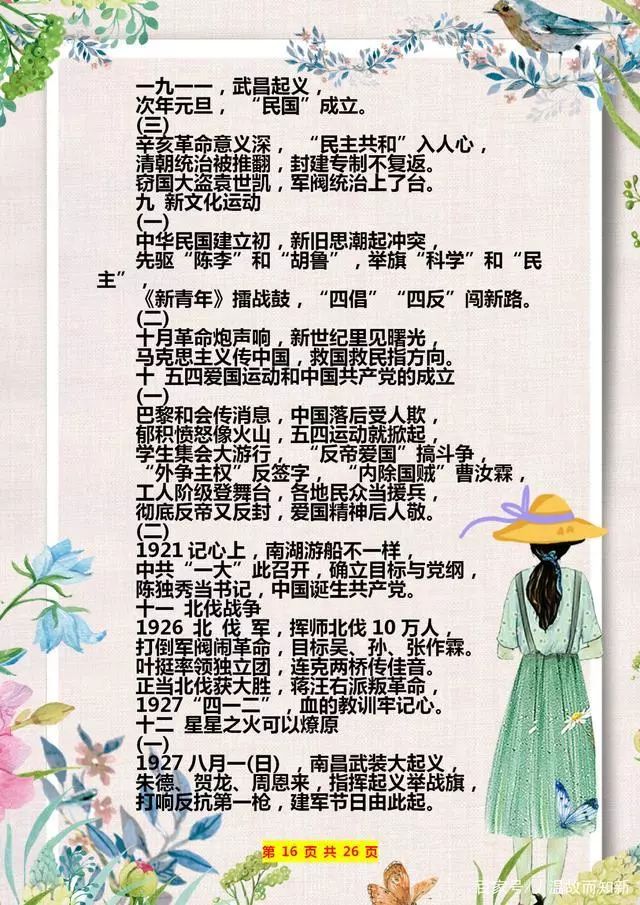 一九一一，武昌起义，
次年元旦， “民国”成立。
(三)
辛亥革命意义深， “民主共和”入人心，
清朝统治被推翻，封建专制不复返。
窃国大盗袁世凯，军阀统治上了台。
九 新文化运动
(一)
中华民国建立初，新旧思潮起冲突，
先驱“陈李”和“胡鲁”，举旗“科学”和“民
主”，
《新青年》擂战鼓，“四倡”“四反”闯新路。
(二)
十月革命炮声响，新世纪里见曙光，
马克思主义传中国，救国救民指方向。
十 五四爱国运动和中国共产党的成立
(一)
巴黎和会传消息，中国落后受人欺，
郁积愤怒像火山，五四运动就掀起，
学生集会大游行， “反帝爱国”搞斗争，
“外争主权”反签字， “内除国贼”曹汝霖，
工人阶级登舞台，各地民众当援兵，
彻底反帝又反封，爱国精神后人敬。
(二)
1921 记心上，南湖游船不一样，
中共“一大”此召开，确立目标与党纲，
陈独秀当书记，中国诞生共产党。
十一 北伐战争
1926 北 伐 军，挥师北伐 10 万人，
打倒军阀闹革命，目标吴、孙、张作霖。
叶挺率领独立团，连克两桥传佳音。
正当北伐获大胜，蒋汪右派叛革命，
1927“四一二”，血的教训牢记心。
十二 星星之火可以燎原
(一)
1927 八月一(日) ，南昌武装大起义，
朱德、贺龙、周恩来，指挥起义举战旗，
打响反抗第一枪，建军节日由此起。
第 16 页 共 26 页
百家号/温故而知新